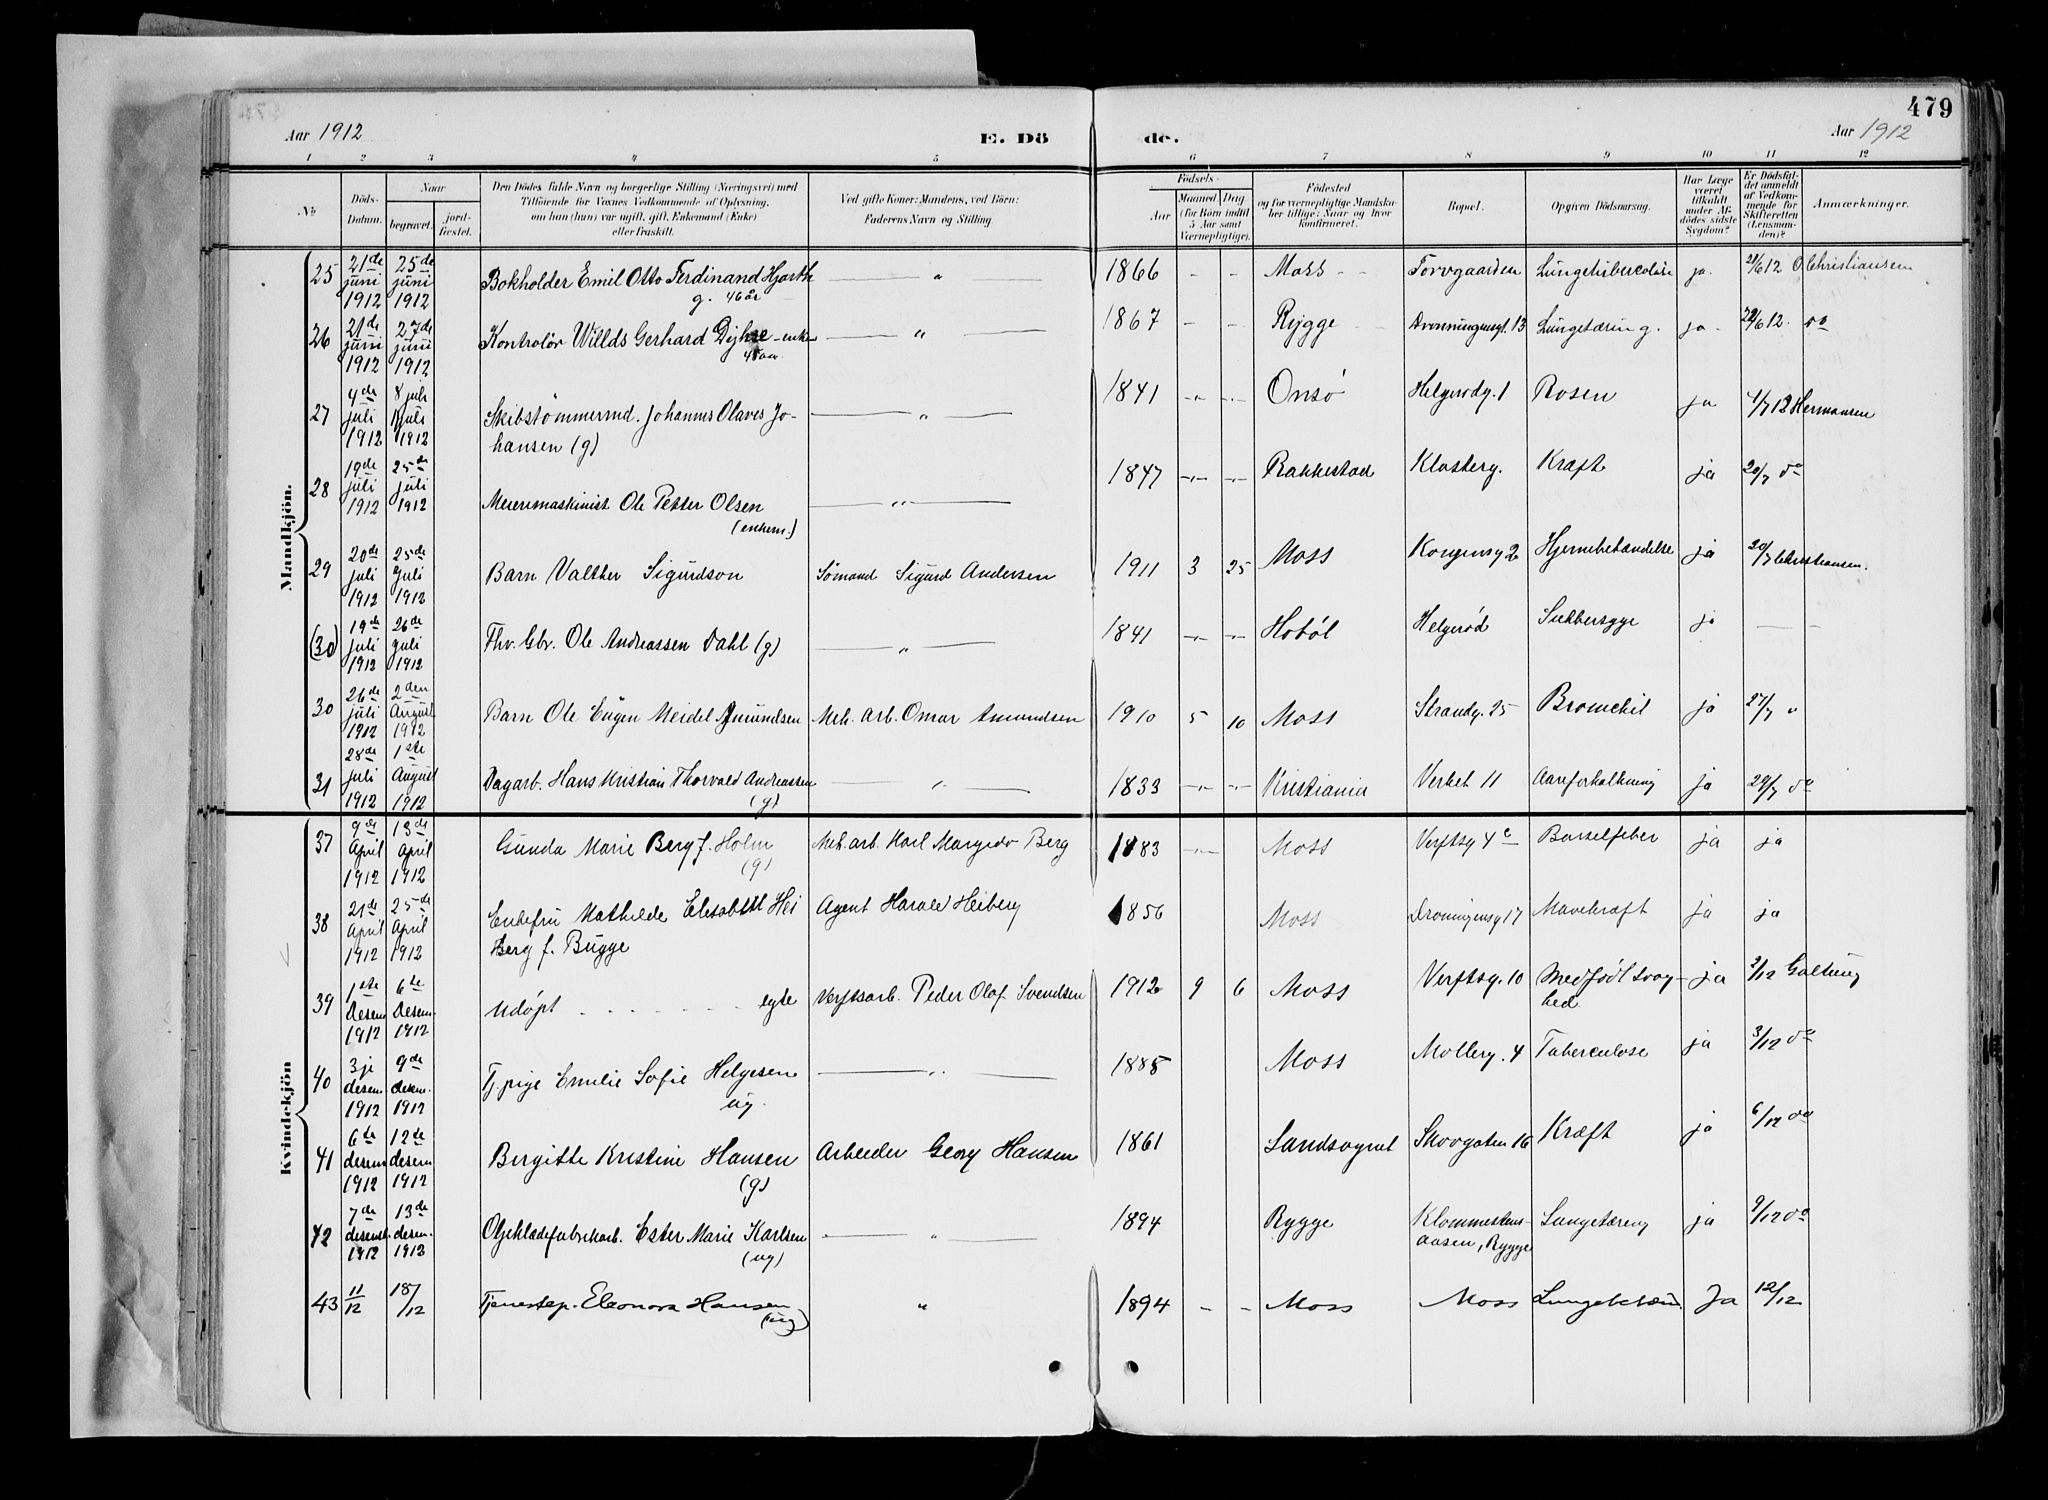 479
Aar 1912 E. Dö de. Aar 1912
1 2 3 4 5 6 7 8 9 10 11 12
No.
Döds-Datum.
Naar
begravet.
jord-fæstet.
Den Dödes fulde Navn og borgerlige Stilling (Næringsvei) med
Tilföiende for Voxnes Vedkommende af Oplysning,
om han (hun) var ugift, gift, Enkemand (Enke)
eller fraskilt.
Ved gifte Koner: Mandens, ved Börn:
Faderens Navn og Stilling
Födsels-
Aar
Maaned Dag
(for Börn indtil
5 Aar samt
Værnepligtige).
Födested
og for værnepligtige Mandska-
ber tillige: Naar og hvor
konfirmeret.
Bopæl.
Opgiven Dödsaarsag.
Har Læge
været
tilkaldt
under Af-
dödes sidste
Sygdom?
Er Dödsfal-
det anmeldt
af Vedkom-
mende for
Skifteretten
(Lensman-
den)?
Anmærkninger.
Mandkjön.
25 21de juni 1912 25de juni 1912 Bokholder Emil Otto Ferdinand Hjorth g. 46 år " 1866 - - Moss Torvgaarden Lungetuberculose ja. 21/6 12 O Christiansen
26 21de juni 1912 27de juni 1912 Kontrolör Willds Gerhard Dyhre - enkem " 1867 - - Rygge Dronningensgt. 13 Lungetæring. ja. 22/6 12. do
27 4de juli 1912 8 juli 1912 Skibstömmermd. Johannes Olaves Jo-
hansen (g) " 1841 Onsö Helgerødg. 1 Rosen ja 4/7 12 Hermansen
28 19de juli 1912 25de juli 1912 Meierimaskinist Ole Petter Olsen
(enkem.) " 1847 Rakkestad Klosterg. Kræft ja 20/7 do
29 20de juli 1912 25de juli 1912 Barn Valther Sigurdson Sömand Sigurd Andersen 1911 3 25 Moss Kongensg 2 Hjernebetændelse ja 20/7 Christiansen.
(30) 19de juli 1912 26de juli 1912 Fhv. Gbr. Ole Andreassen Dahl (g) " 1841 Hobøl Helgerød Sukkersyge ja
30 26de juli 1912 2den August 1912 Barn Ole Eugen Meidel Amundsen Mek. arb. Omar Amundsen 1910 5 10 Moss Strandg. 25 Bronchit ja 27/7 "
31 28de juli 1912 1ste August 1912 Dagarb. Hans Kristian Thorvald Andreassen
(g) " 1833 Kristiania Verket 11 Aareforkalkning ja 29/7 do
Kvindekjön
37 9de April 1912 13de April 1912 Gunda Marie Berg f. Holm
(g) Mek. arb. Karl Margido Berg 1883 Moss Verftsg 4c Barselfeber ja ja
38 21de April 1912 25de April 1912 Enkefru Mathilde Elisabeth Hei
berg f. Bugge Agent Harald Heiberg 1856 Moss Droningensg 17 Mavekræft ja ja
39 1ste Desem 1912 6te Desem. 1912 Udöpt . . . . . egte Verftsarb. Peder Olaf Svendsen 1912 9 6 Moss Verftsg. 10 Medfødt svag-
hed ja 2/12 Galtung
40 3je desem 1912 9de desem. 1912 Tj. pige Emilie Sofie Helgesen
ug. " 1885 Moss Mollerg. 4 Tuberculose ja 3/12 do
41 6te desem 1912 12de desem 1912 Birgitte Kristine Hansen
(g) Arbeider Georg Hansen 1861 Landsognet Skovgaten 16 Kræft ja 6/12 do
42 7de desemb. 1912 13de desem. 1912 Oljeklædefabrikarb. Ester Marie Karlsen
(ug) " 1894 Rygge Klommestens-
aasen, Rygge Lungetæring ja 9/12 do
43 11/12 18/12 Tjenestep. Eleonora Hansen
(ug) " 1894 - - Moss Moss Ja 12/12